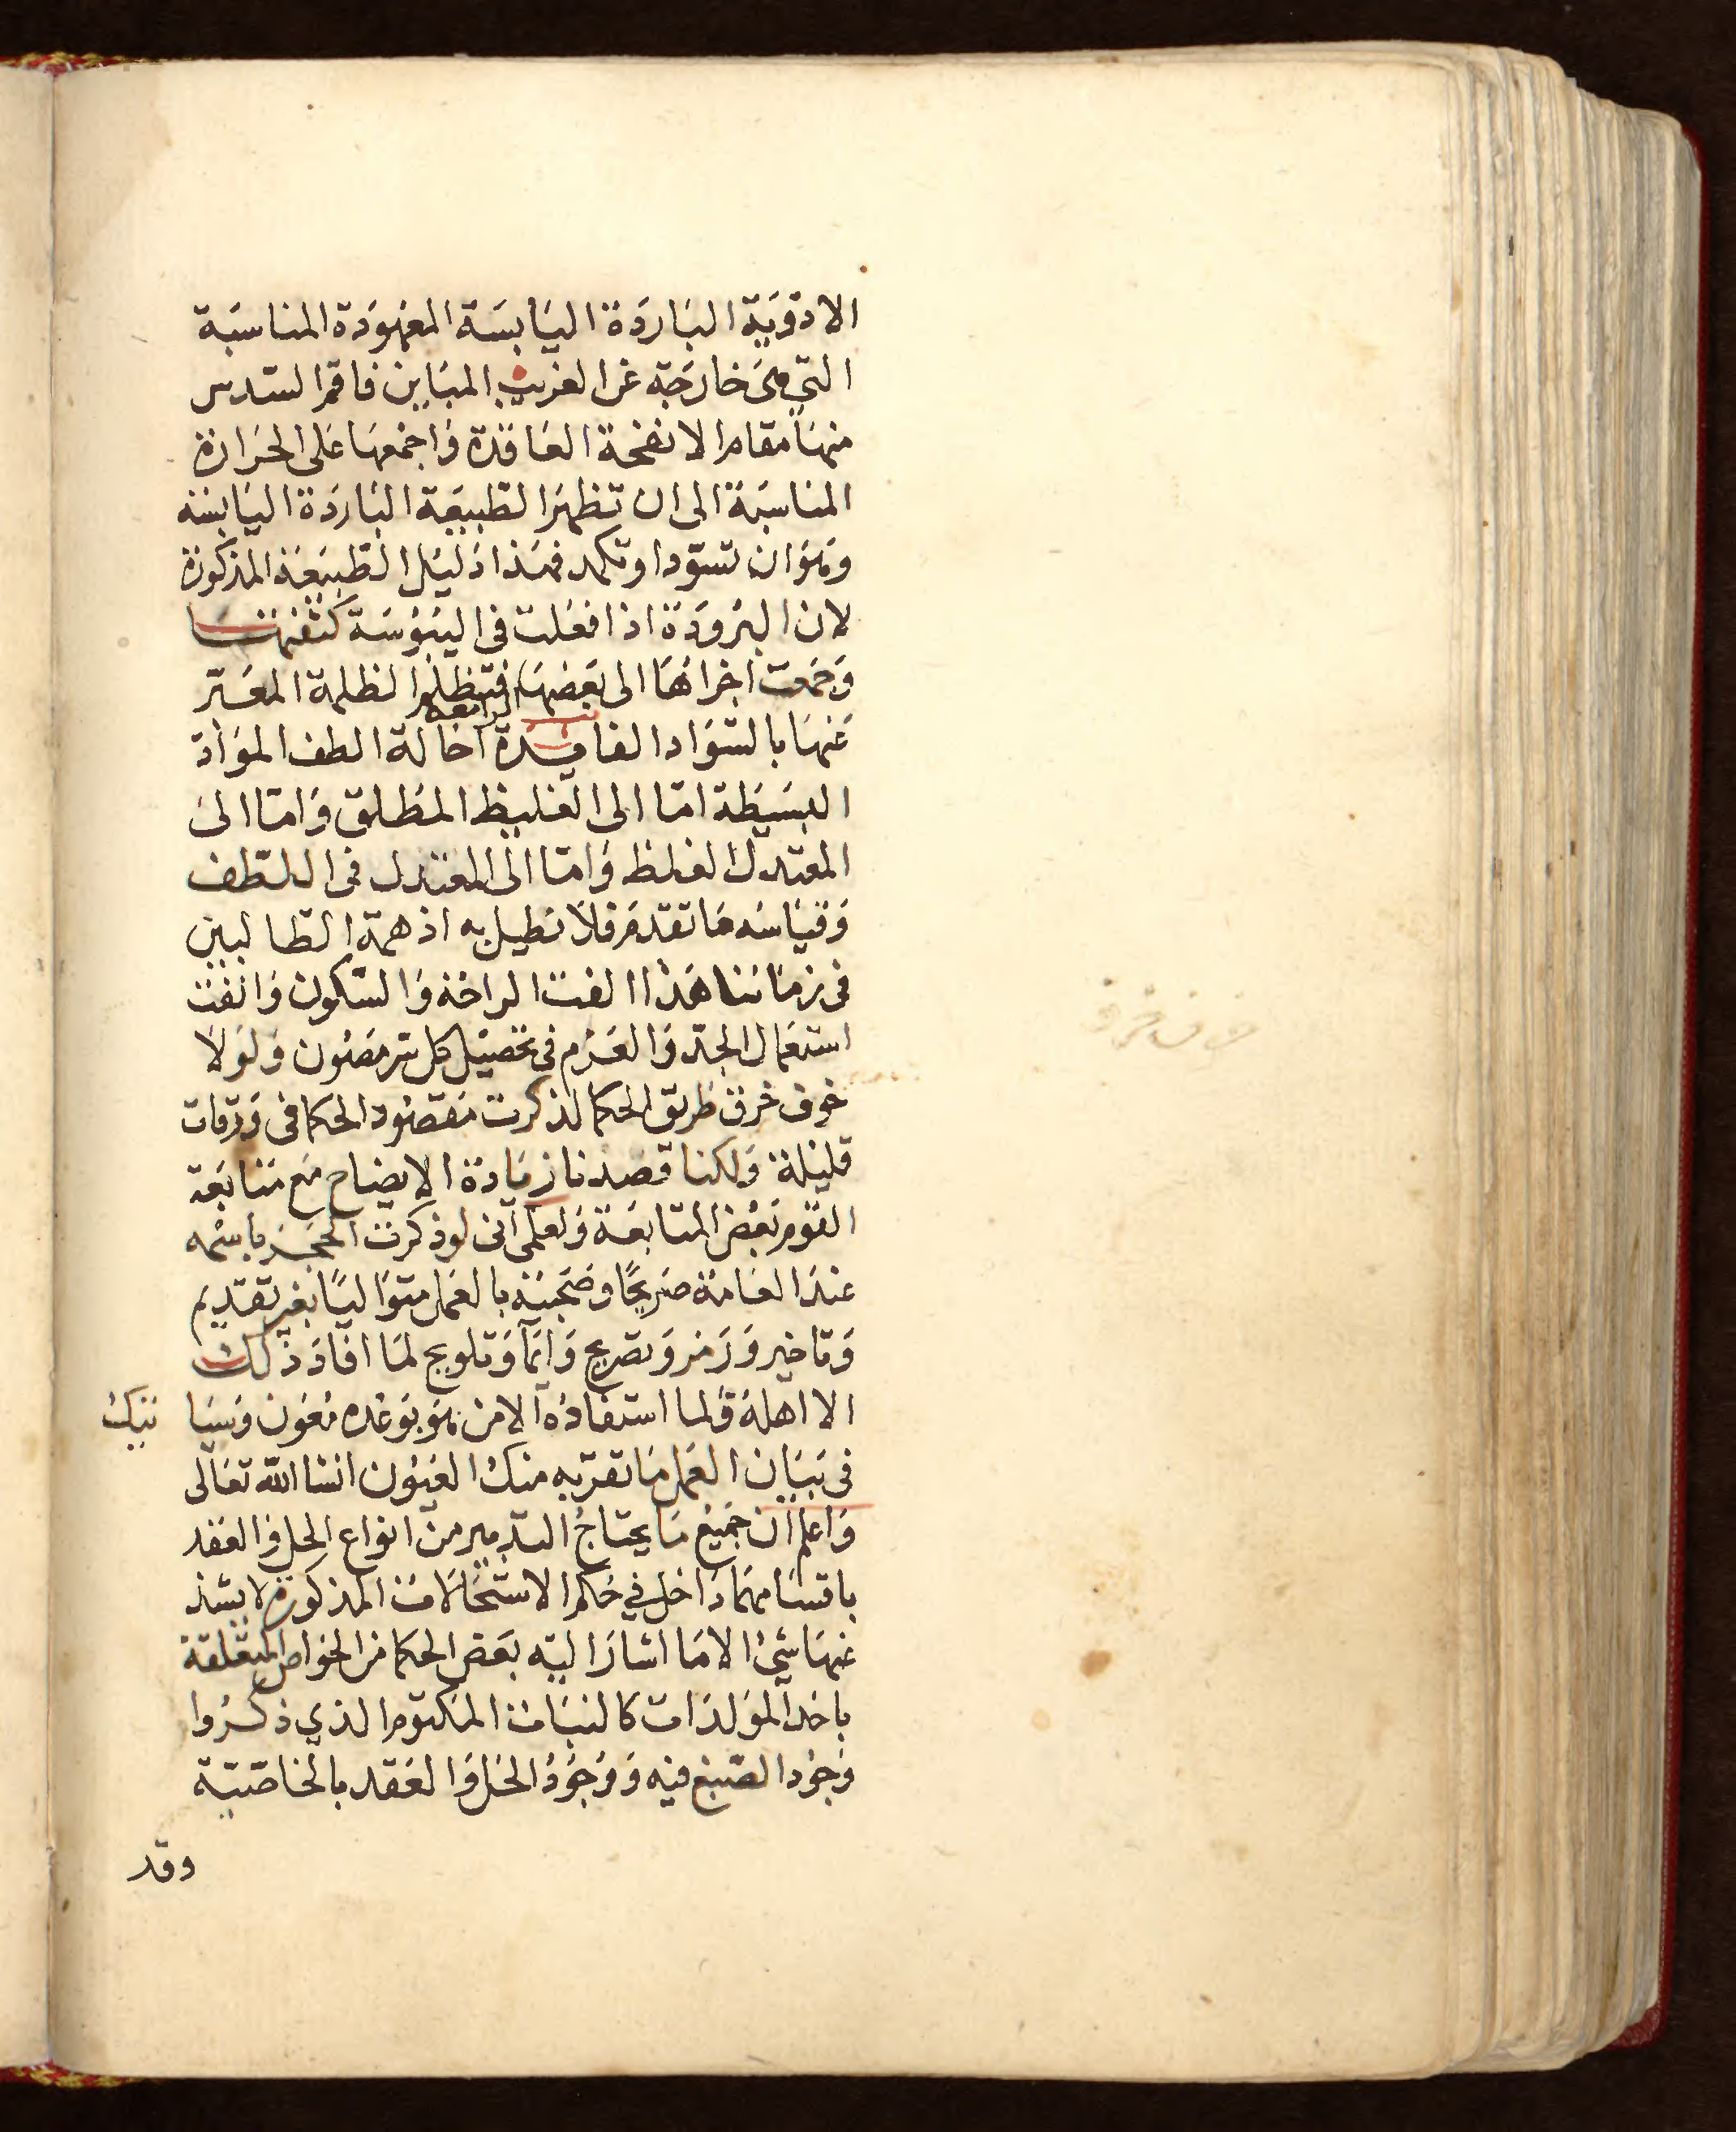 الادوية الباردة اليابسة المعهودة المناسبة
التي هى خارجة عن الغريب المباين فاقم السدس
منها مقام الانفحة العاقدة واجمعها على الحرارة
المناسبة الى ان تظهر الطبيعة الباردة اليابسة
وهو ان تسود او تكمد فهذا دليل الطبيعة المذكورة
لان البرودة اذا فعلت فى اليبوسة كثفتها
وجمعت اجزاها الى بعضها فتظلم الظلمة المعبر
عنها بالسواد الفايدة الرابعة احالة الطف المواد
البسيطة اما الى الغليظ المطلق واما الى
المعتدل الغلظ واما الى المعتدل فى اللطف
وقياسه ما تقدم فلا نطيل به اذ همة الطالبين
فى زماننا هذا الفت الراحة والسكون وانفت
استعمال الجد والعزم فى تحصيل كل سر مصون ولولا
خوف خرق طريق الحكما لذكرت مقصود الحكما فى ورقات
قليلة ولكنا قصدنا زيادة الايضاح مع متابعة
القوم بعض المتابعة ولعلمى انى لو ذكرت الحجر باسمه
عند العامة صريحا وصحبته بالعمل متواليا بغير تقديم
وتاخير ورمز وتصريح وايما وتلويح لما افاد ذلك
الا اهله ولما استفاده الا من هو بوعده معون وسيا تيك
فى بيان العمل ما تقر به منك العيون انشا الله تعالى
واعلم ان جميع ما يحتاج التدبير من انواع الحل والعقد
باقسامهما داخل في حكم الاستحالات المذكورة لا يشذ
عنها شئ الا ما اشار اليه بعض الحكما من الخواص المتعلقة
باحد المولدات كالنبات المكتوم الذي ذكروا
وجود الصبغ فيه ووجود الحل والعقد بالخاصية
وقد